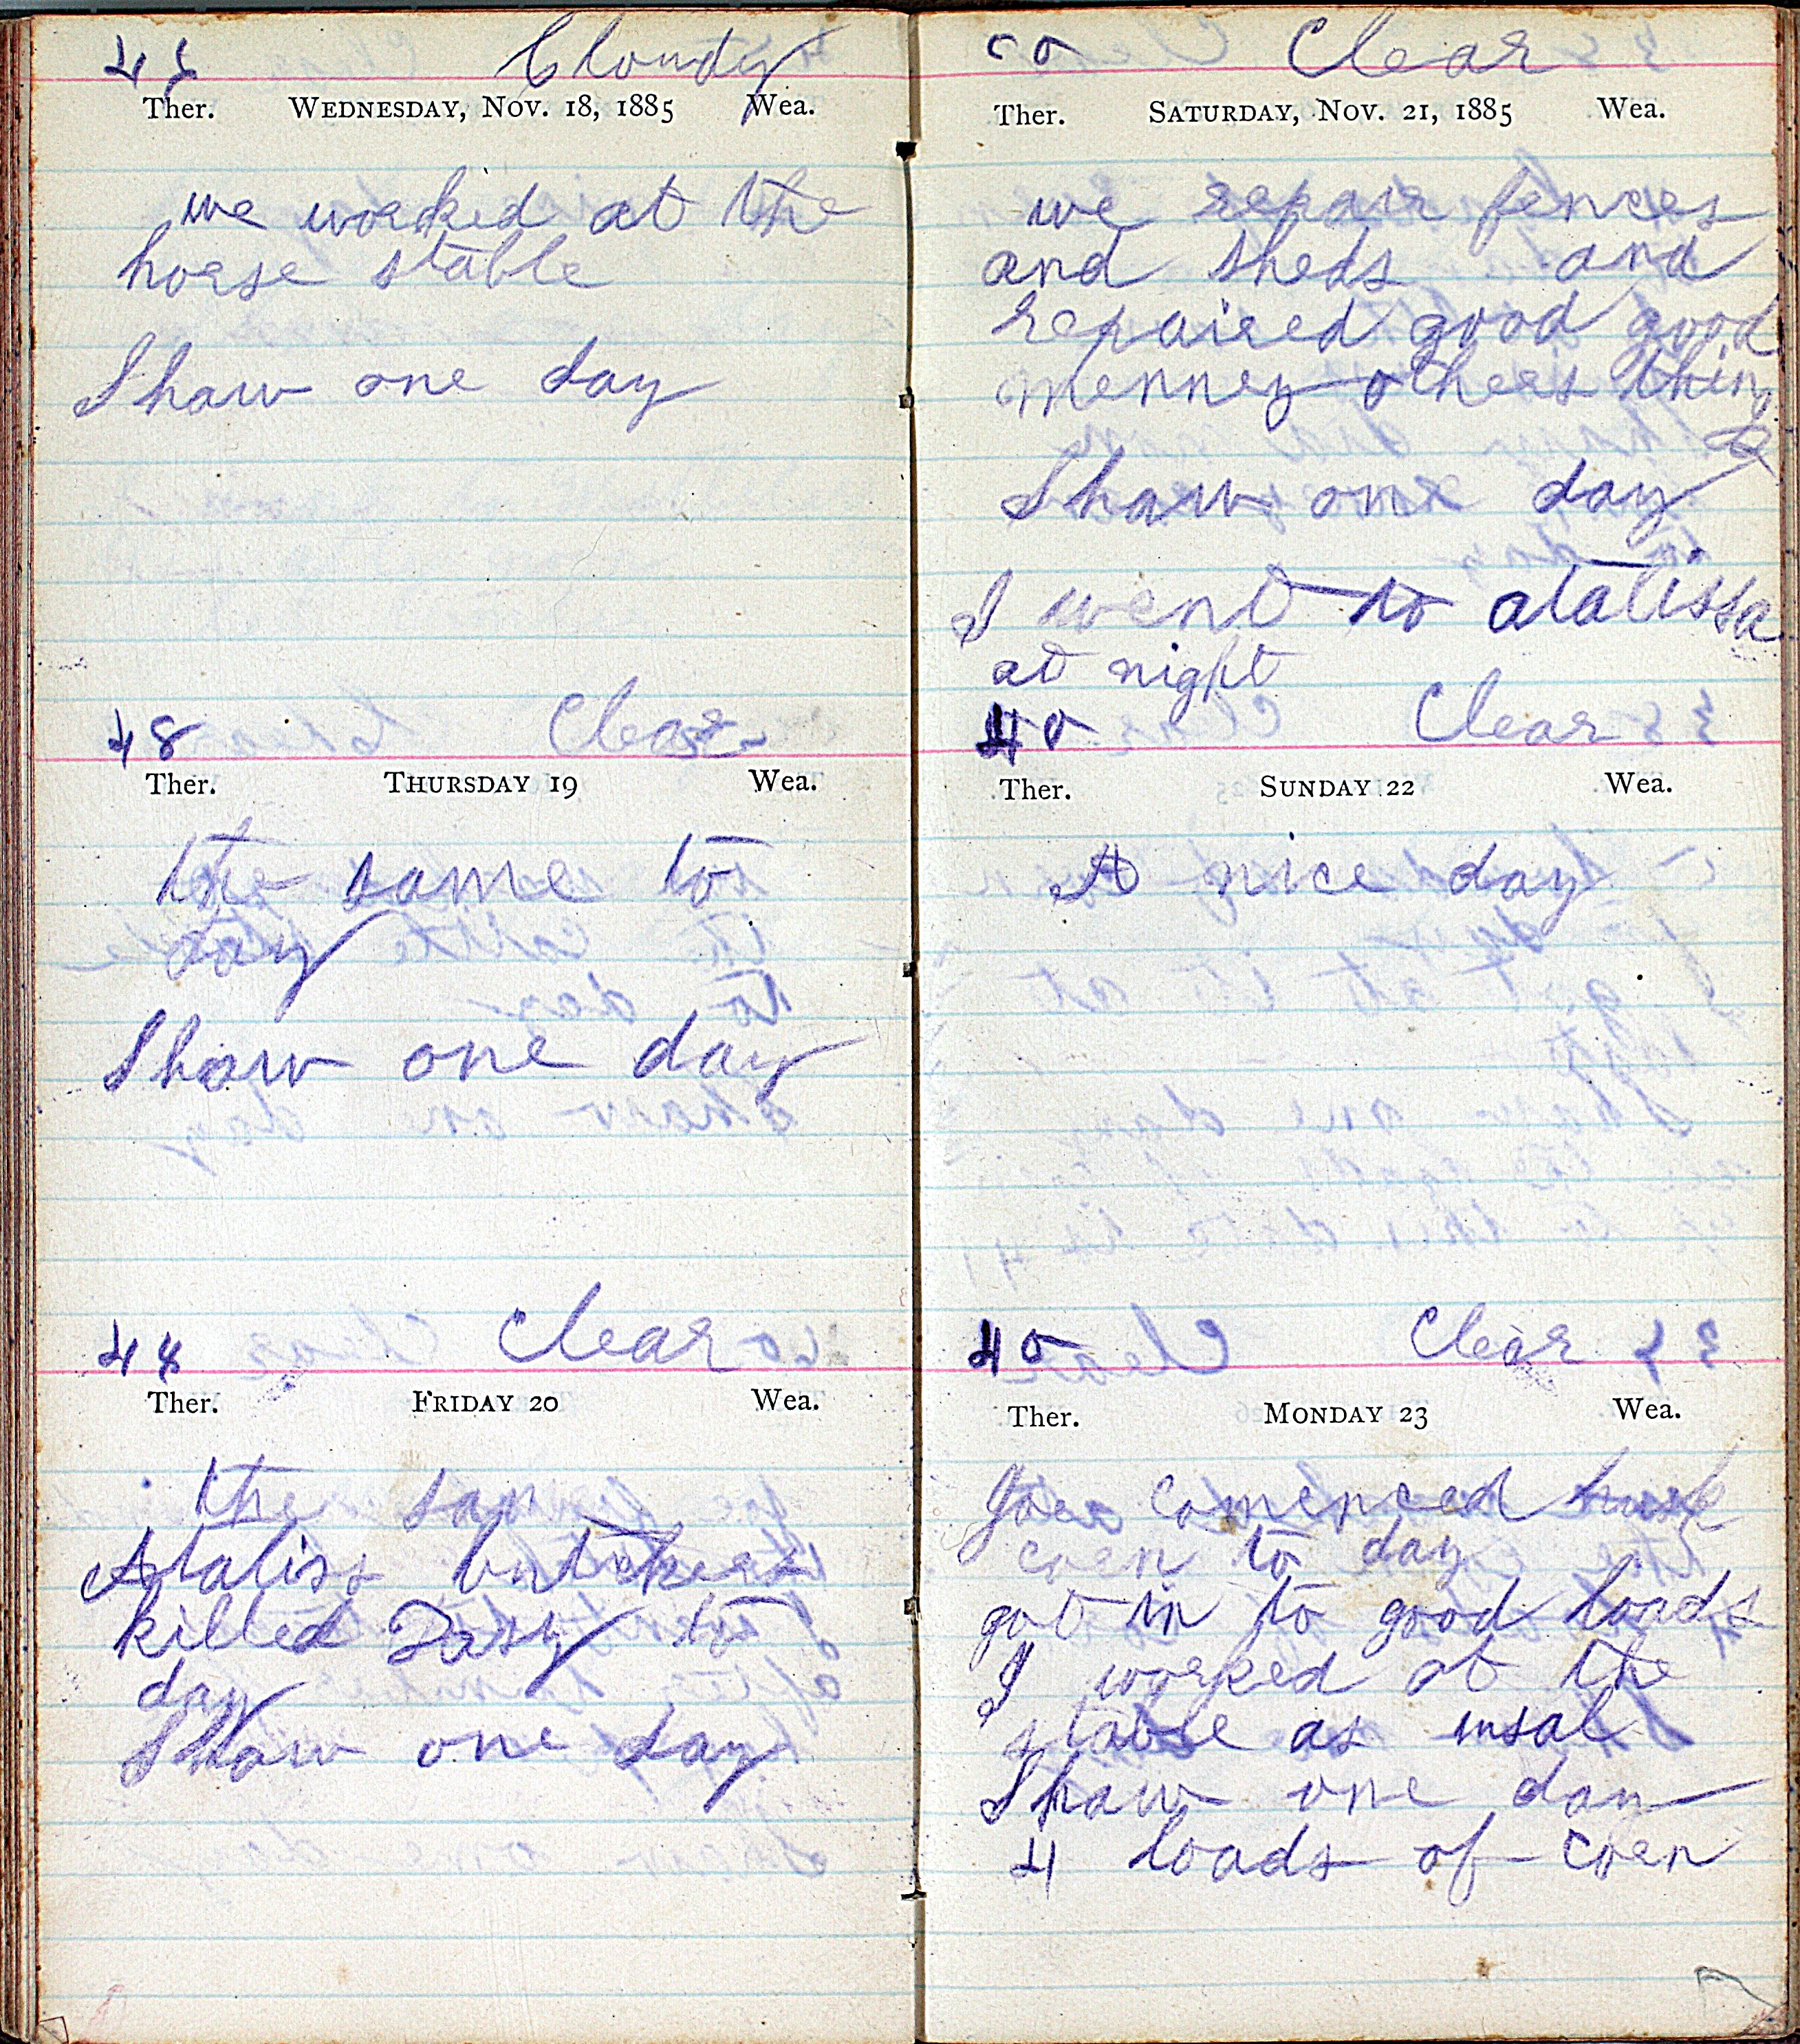 Cloudy
Ther. WEDNESDAY, NOV. 18, 1885 Wea.
we worked at the
horse stable
Shaw one day
48 Clear
Ther. THURSDAY 19 Wea.
the same to
day
Shaw one day
48 Clear
Ther. FRIDAY 20 Wea.
the sam
Ataliss butchers
killed to
day
Shaw one day
50 Clear
Ther. SATURDAY, NOV. 21, 1885 Wea.
we repair fences
and sheds and
repaired good good
menney others thing
s
Shaw one day
I went to atalissa
at night
40 Clear
Ther. SUNDAY 22 Wea.
A nice day
40 Clear
Ther. MONDAY 23 Wea.
Joe comenced husk
corn to day
got in to good loads
I worked at the
stable as usal
Shaw one day
4 loads of corn